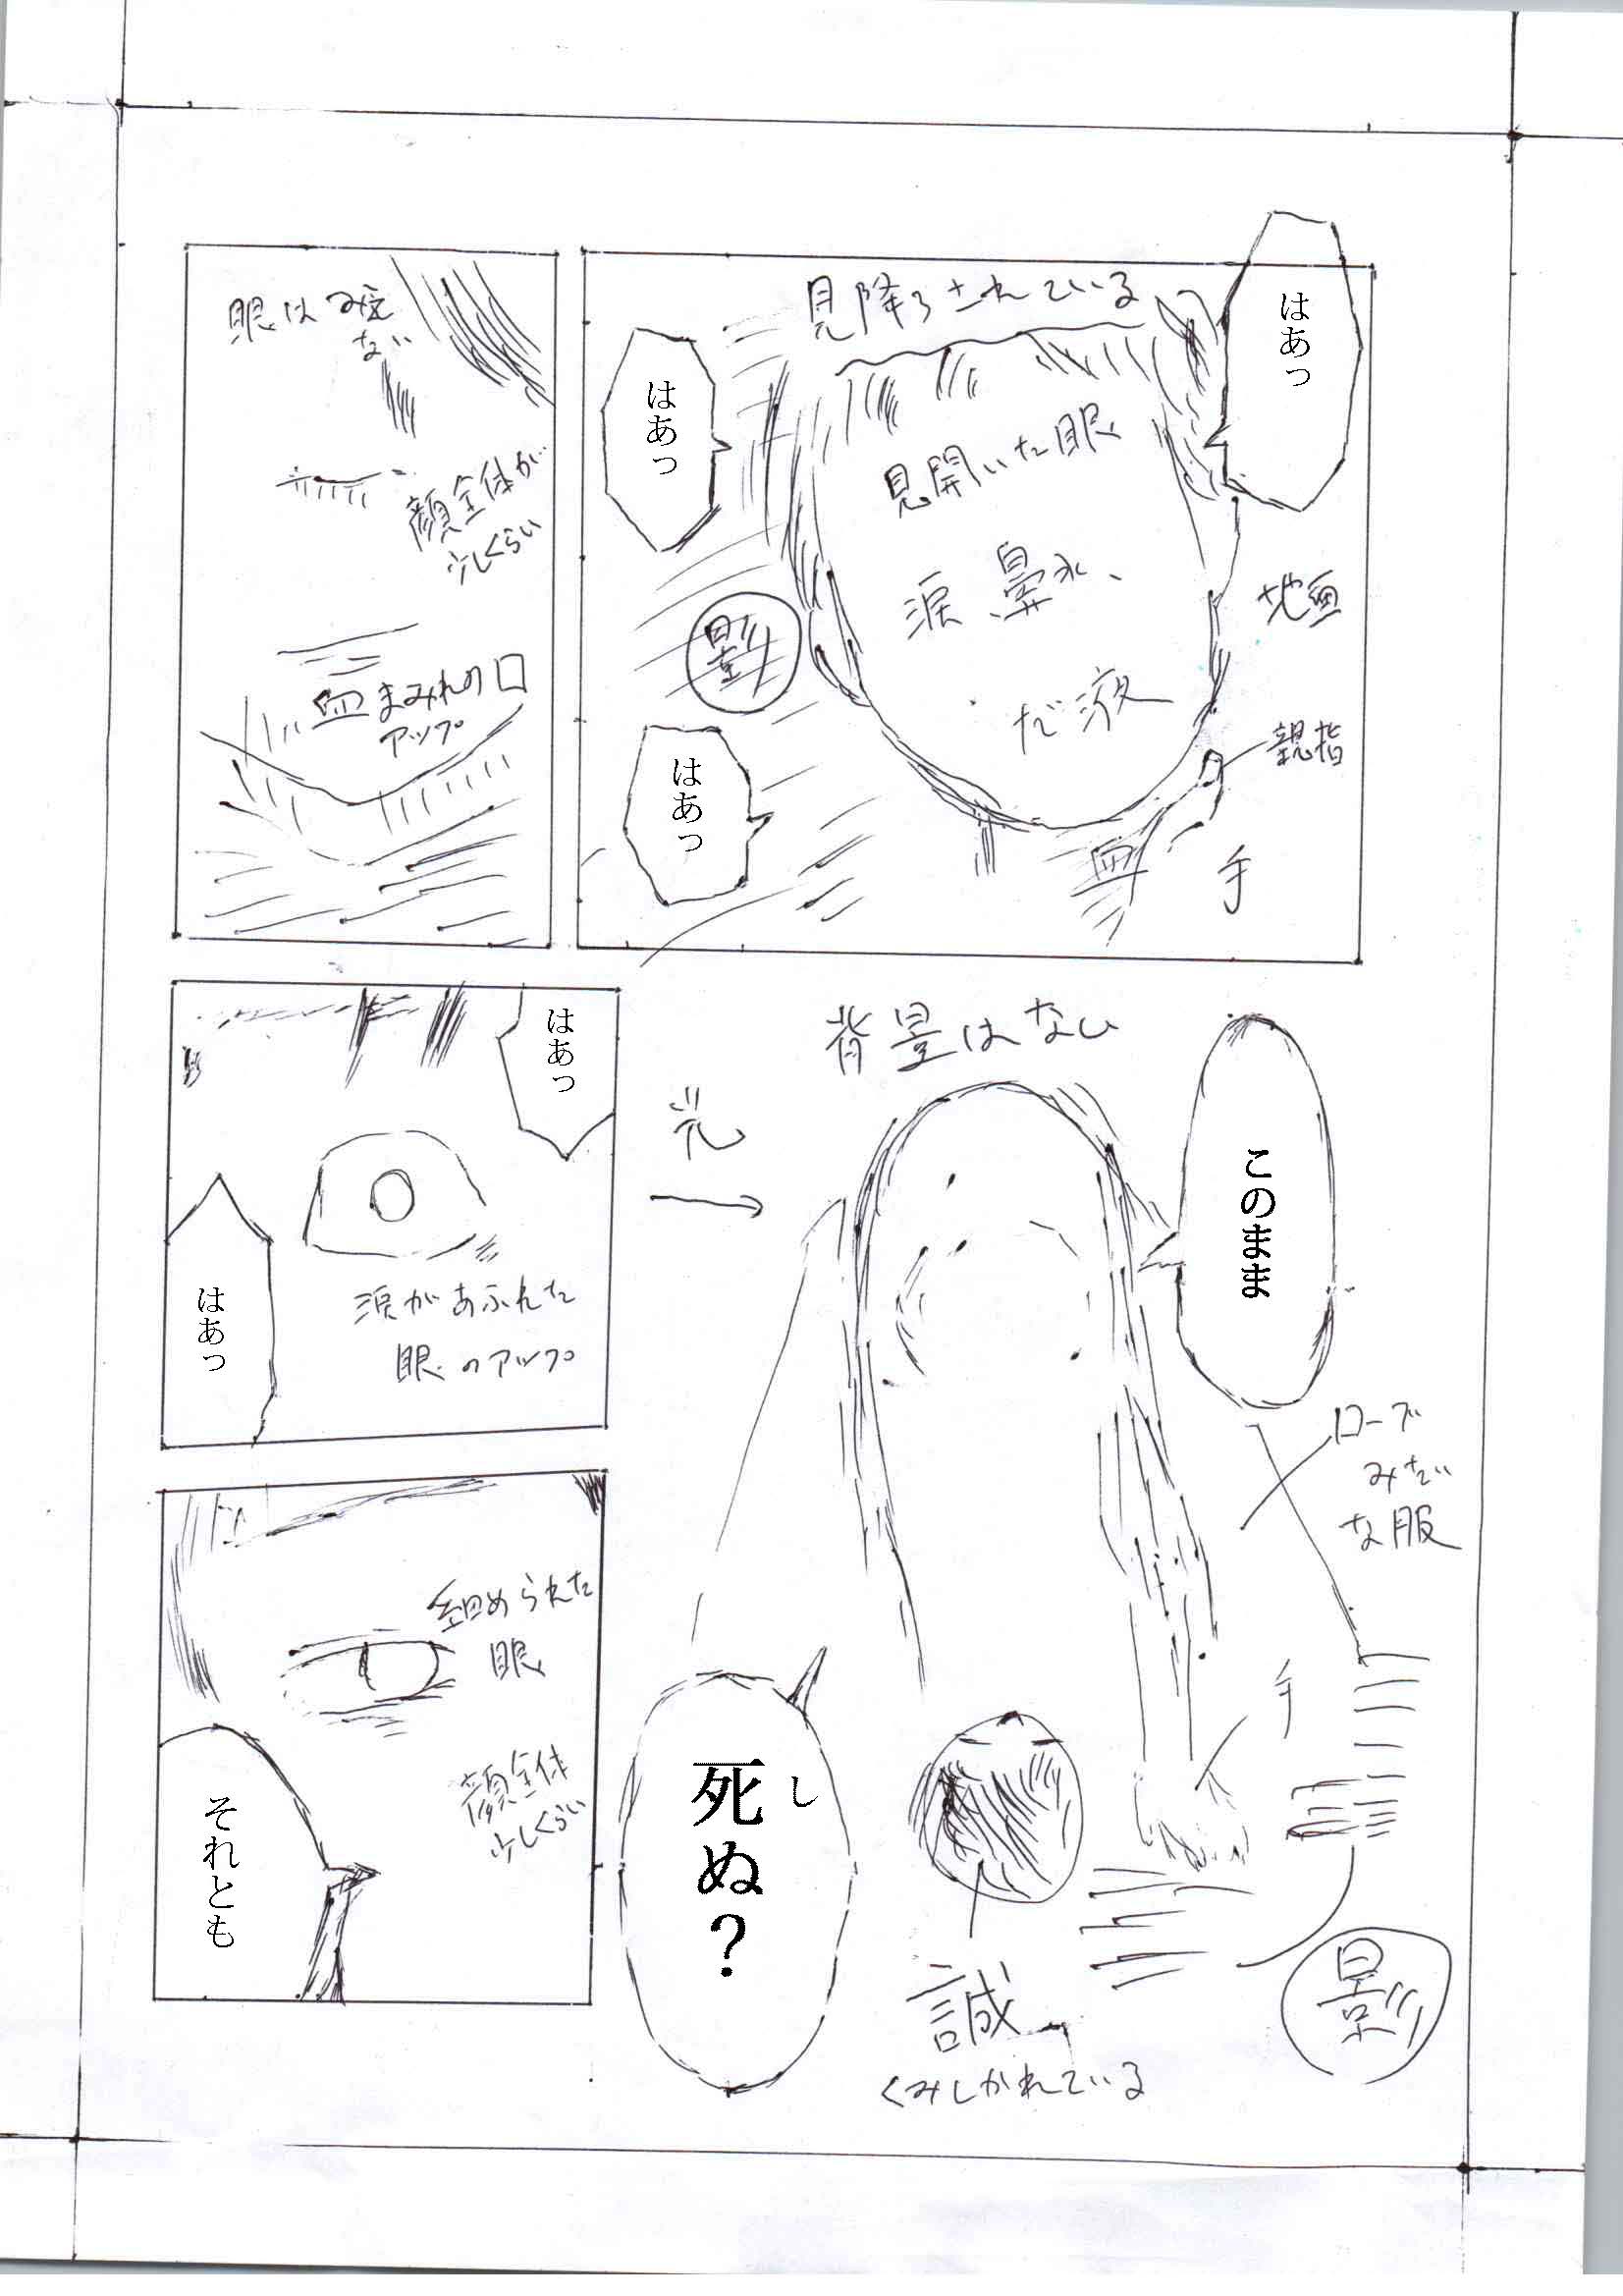 見降ろされている
はあっ
見開いた眼
涙、鼻水、
だ液
はあっ
影
地面
親指
はあっ
血
手
眼はみえ
ない
顔全体が
少しくらい
血まみれの口
アップ
背景はなし
このまま
光
ローブ
みたい
な服
手
死ぬ?
し
誠
くみしかれている
影
はあっ
はあっ
涙があふれた
眼のアップ
細められた
眼
顔全体
少しくらい
それとも